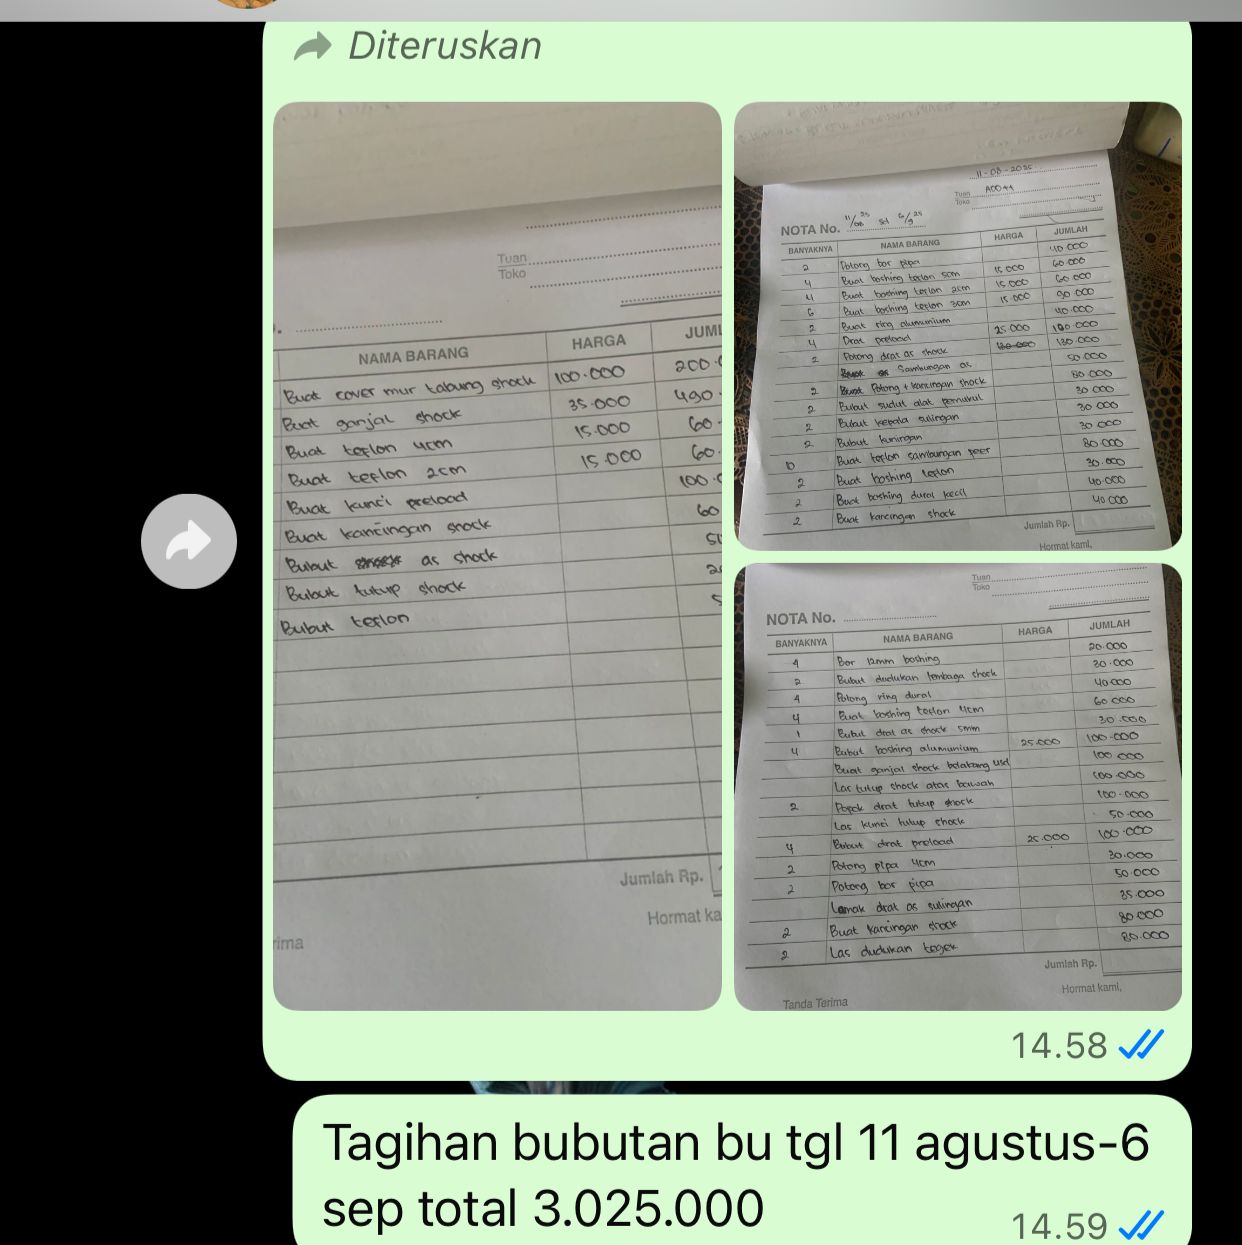 Diteruskan
Tuan
Toko
NAMA BARANG HARGA JUML
Buat cover mur tabung shock 100.000 200.0
Buat ganjal shock 35.000 490.
Buat teflon 4cm 15.000 60.
Buat teflon 2cm 15.000 60.
Buat kunci preload 100.0
Buat kancingan shock 60
Bubut as shock 50
Bubut tutup shock 20
Bubut teflon 5
Jumlah Rp.
Hormat ka
rima
11-08-2025
Tuan
Toko
NOTA No. 11/08 25 sd 6/9 25
BANYAKNYA NAMA BARANG HARGA JUMLAH
2 Potong bor pipa 40.000
4 Buat boshing teflon 5cm 15.000 60.000
4 Buat boshing teflon 2cm 15.000 60.000
6 Buat boshing teflon 3cm 15.000 90.000
2 Buat ring alumunium 40.000
4 Drat preload 25.000 100.000
2 Potong drat as shock 130.000
Sambungan as 50.000
2 Potong + kancingan shock 80.000
2 Bubut sudut alat pemukul 30.000
2 Bubut kepala sulingan 30.000
2 Bubut kuningan 30.000
10 Buat teflon sambungan peer 80.000
2 Buat boshing teflon 30.000
2 Buat boshing dural kecil 40.000
2 Buat kancingan shock 40.000
Jumlah Rp.
Hormat kami,
Tuan
Toko
NOTA No.
BANYAKNYA NAMA BARANG HARGA JUMLAH
4 Bor 12mm boshing 20.000
2 Bubut dudukan tembaga shock 30.000
4 Potong ring dural 40.000
4 Buat boshing teflon 4cm 60.000
1 Bubut drat as shock 5mm 30.000
4 Bubut boshing alumunium 25.000 100.000
Buat ganjal shock belakang usd 100.000
Las tutup shock atas bawah 100.000
2 Popok drat tutup shock 100.000
Las kunci tutup shock 50.000
4 Bubut drat preload 25.000 100.000
2 Potong pipa 4cm 30.000
2 Potong bor pipa 50.000
Lamak drat as sulingan 35.000
2 Buat kancingan shock 80.000
2 Las dudukan togek 80.000
Jumlah Rp.
Tanda Terima Hormat kami,
14.58
Tagihan bubutan bu tgl 11 agustus-6
sep total 3.025.000
14.59